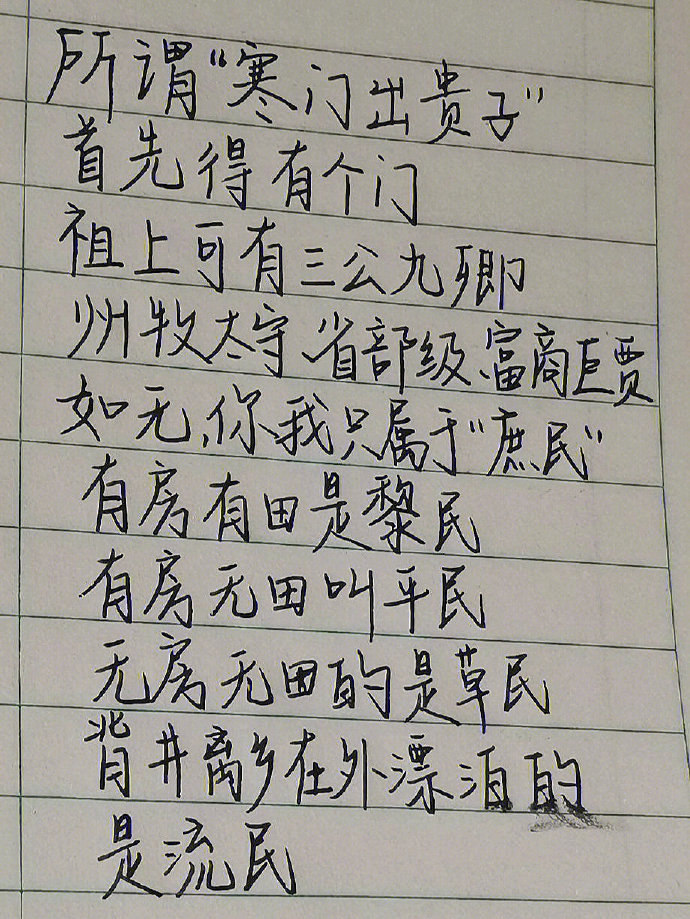 所谓“寒门出贵子”
首先得有个门
祖上可有三公九卿
州牧太守、省部级、富商巨贾
如无,你我只属于“庶民”
有房有田是黎民
有房无田叫平民
无房无田的是草民
背井离乡在外漂泊的
是流民